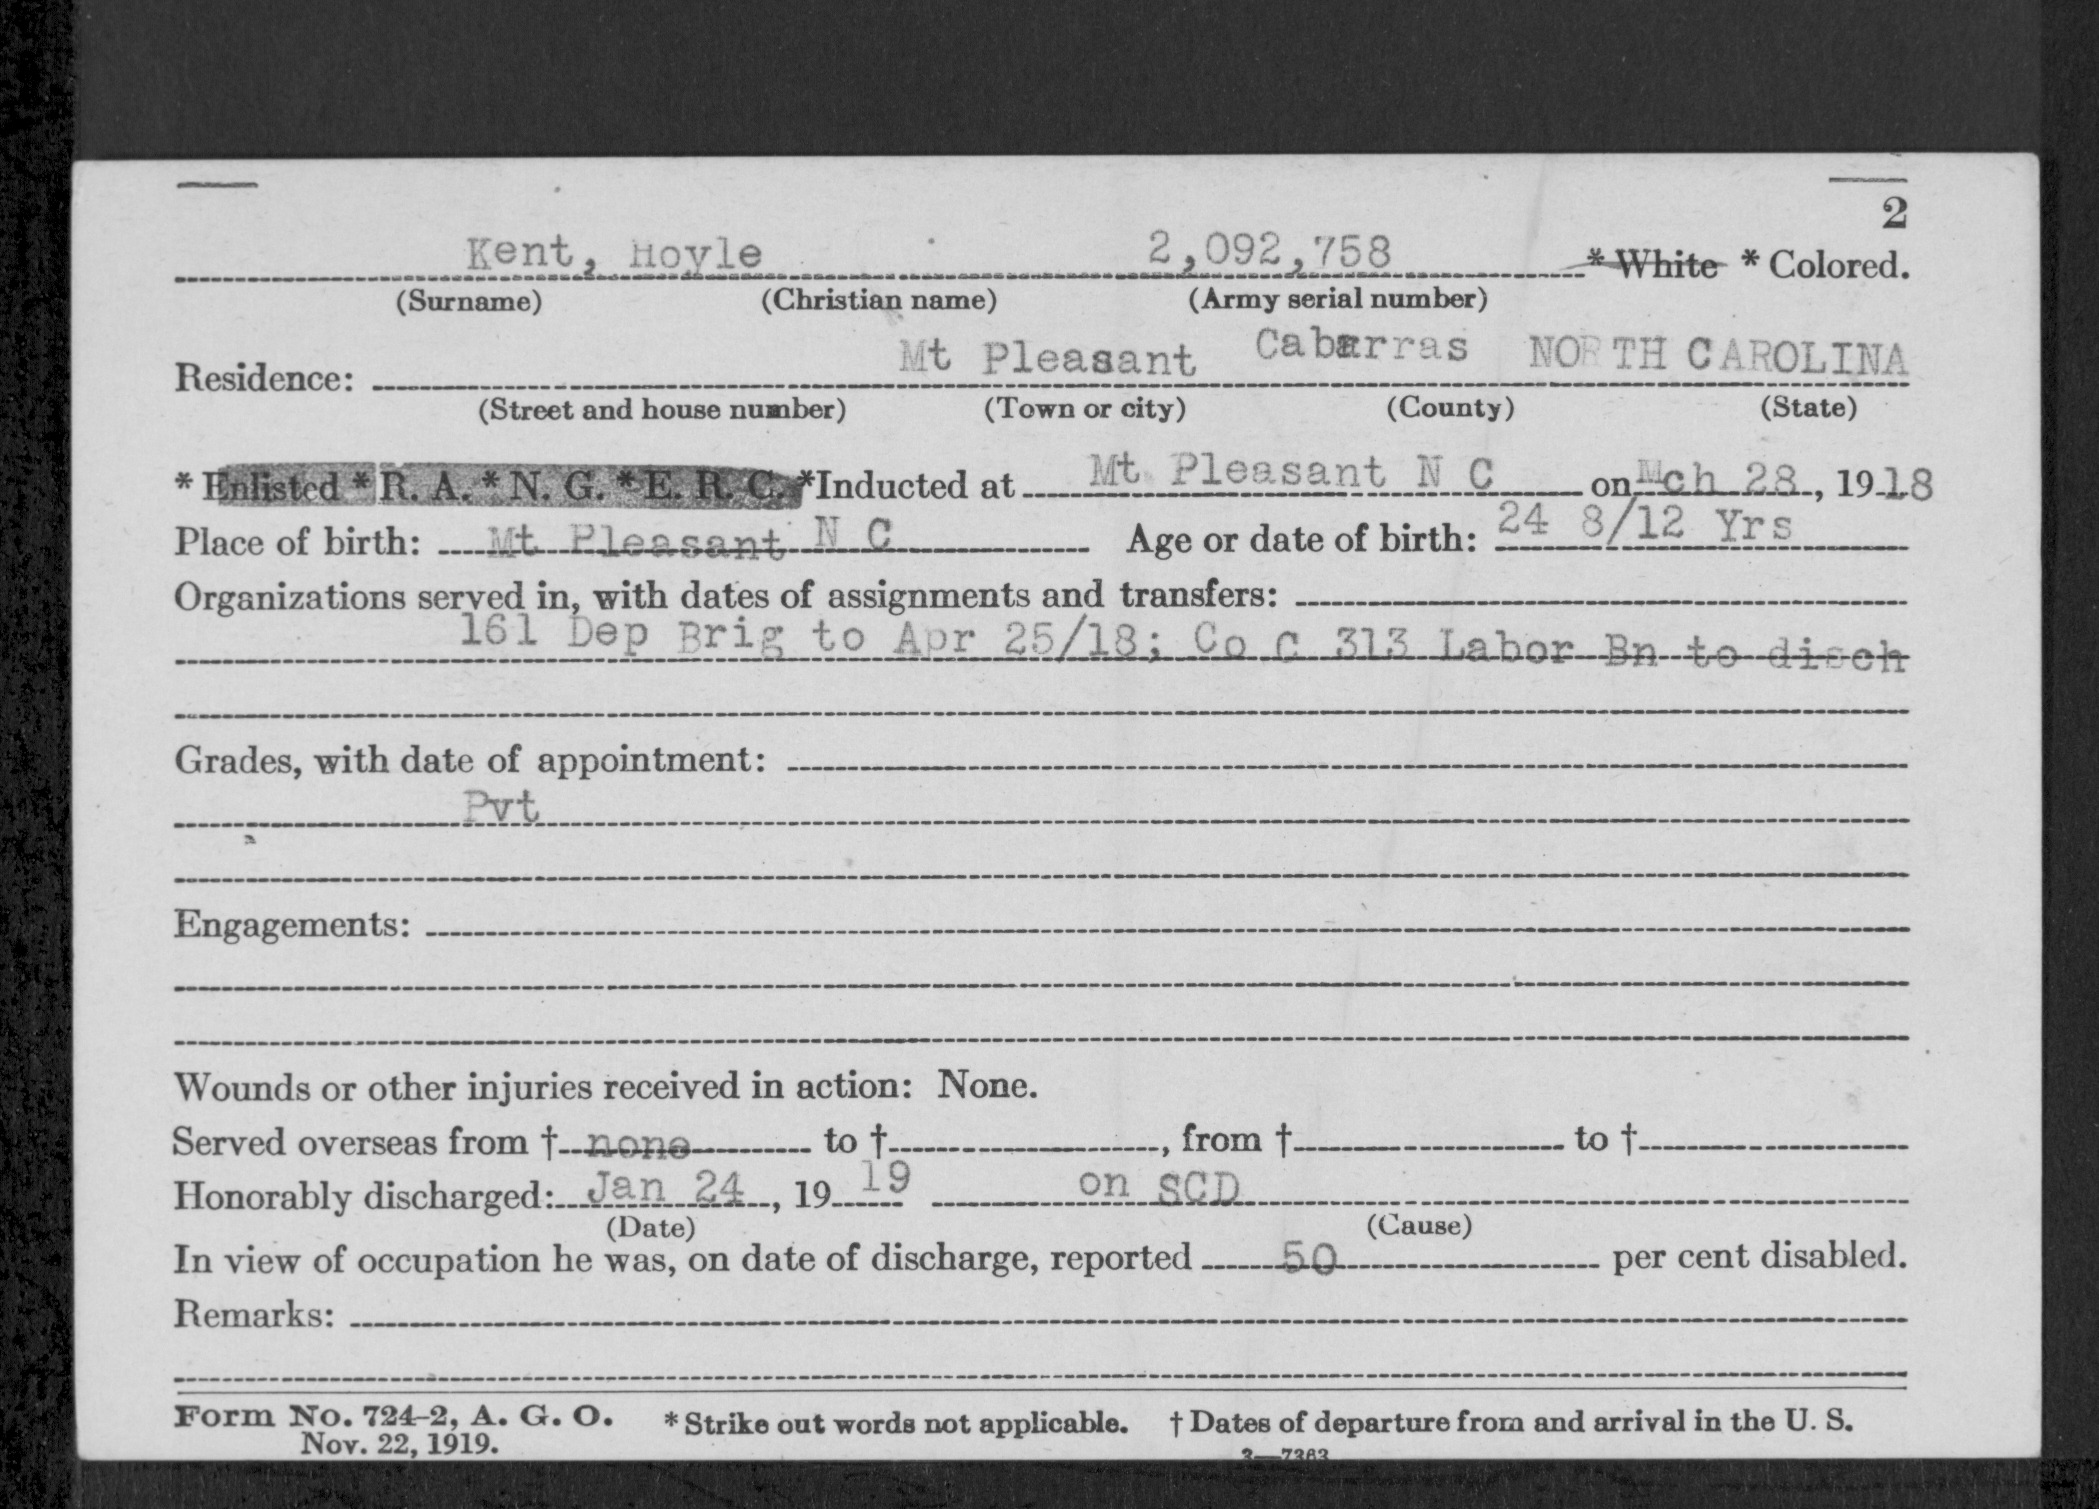 2
Kent, Hoyle 2,092,758 * White * Colored.
(Surname) (Christian name) (Army serial number)
Residence: Mt Pleasant Cabarras NORTH CAROLINA
(Street and house number) (Town or city) (County) (State)
* Enlisted * R. A. * N. G. * E. R. C. *Inducted at Mt Pleasant N C on Mch 28, 1918
Place of birth: Mt Pleasant N C Age or date of birth: 24 8/12 Yrs
Organizations served in, with dates of assignments and transfers:
161 Dep Brig to Apr 25/18; Co C 313 Labor Bn to disch
Grades, with date of appointment:
Pvt
Engagements:
Wounds or other injuries received in action: None.
Served overseas from † none to †, from † to †
Honorably discharged: Jan 24, 19 19 on SCD
(Date) (Cause)
In view of occupation he was, on date of discharge, reported 50 per cent disabled.
Remarks:
Form No. 724-2, A. G. O. * Strike out words not applicable. † Dates of departure from and arrival in the U. S.
Nov. 22, 1919.
3—7363